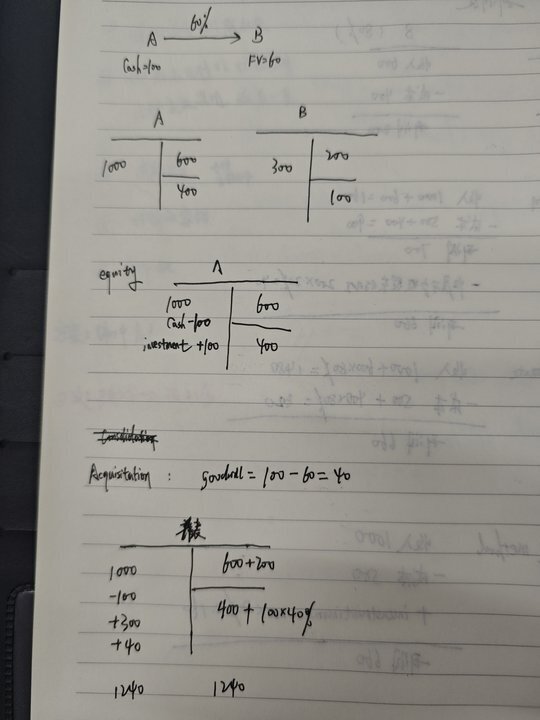 60%
A → B
Cash=100 FV=60
A B
1000 600 300 200
400 100
equity A
1000 600
Cash -100
investment +100 400
Consolidation
Acquisitation : goodwill = 100 - 60 = 40
1000 600+200
-100
+300 400 + 100×40%
+40
1240 1240